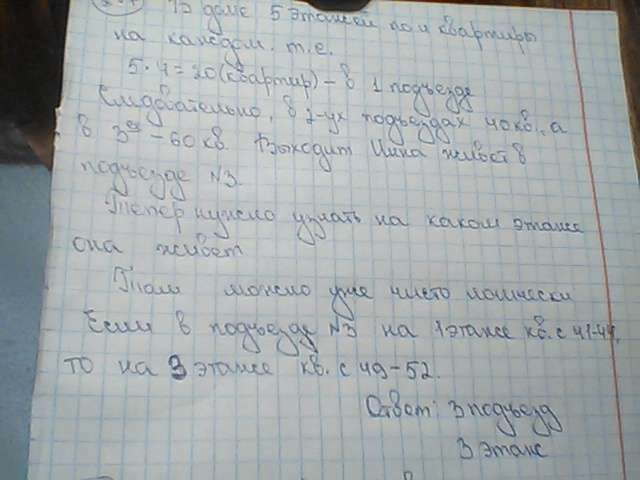 В доме 5 этажей по 4 квартиры
на каждом. т.е.
5·4=20(квартир) – в 1 подъезде
Следовательно, в 2-ух подъездах 40кв., а
в 3ех – 60 кв. Выходит Инна живёт в
подъезде №3.
Тепер нужно узнать на каком этаже
она живёт
Там можно уже чисто логически
Если в подъезде №3 на 1 этаже кв. с 41-44,
то на 3 этаже кв. с 49-52.
Ответ: 3 подъезд
3 этаж